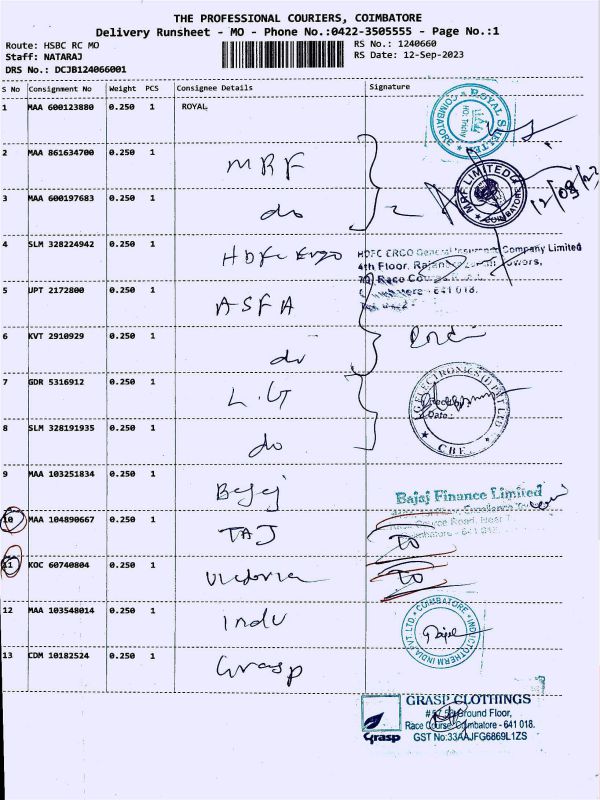 THE PROFESSIONAL COURIERS, COIMBATORE
Delivery Runsheet - MO - Phone No.:0422-3505555 - Page No.:1
Route: HSBC RC MO
RS No.: 1240660
Staff: NATARAJ
RS Date: 12-Sep-2023
DRS No.: DCJB124066001
S No Consignment No Weight PCS Consignee Details Signature
1 MAA 600123880 0.250 1 ROYAL
COIMBATORE ROYAL
2 MAA 861634700 0.250 1 MRF
MRF LIMITED COIMBATORE
12/09/23
3 MAA 600197683 0.250 1 do
4 SLM 328224942 0.250 1 Hdfc Ergo
HDFC ERGO General Insurance Company Limited
4th Floor,
Race
641 018.
5 UPT 2172800 0.250 1 ASFA
6 KVT 2910929 0.250 1 do
7 GDR 5316912 0.250 1 L.G
ELECTRONICS
Date:
CBE
8 SLM 328191935 0.250 1 do
9 MAA 103251834 0.250 1 Bajaj
Bajaj Finance Limited
Race Course Road,
10 MAA 104890667 0.250 1 TAJ
11 KOC 60740804 0.250 1 Victoria
12 MAA 103548014 0.250 1 Indu
COIMBATORE INDUCTOTHERM (INDIA) PVT. LTD.
13 CDM 10182524 0.250 1 Grasp
Grasp
GRASP CLOTHINGS
Ground Floor,
Race Course, Coimbatore - 641 018.
GST No:33AAJFG6869L1ZS